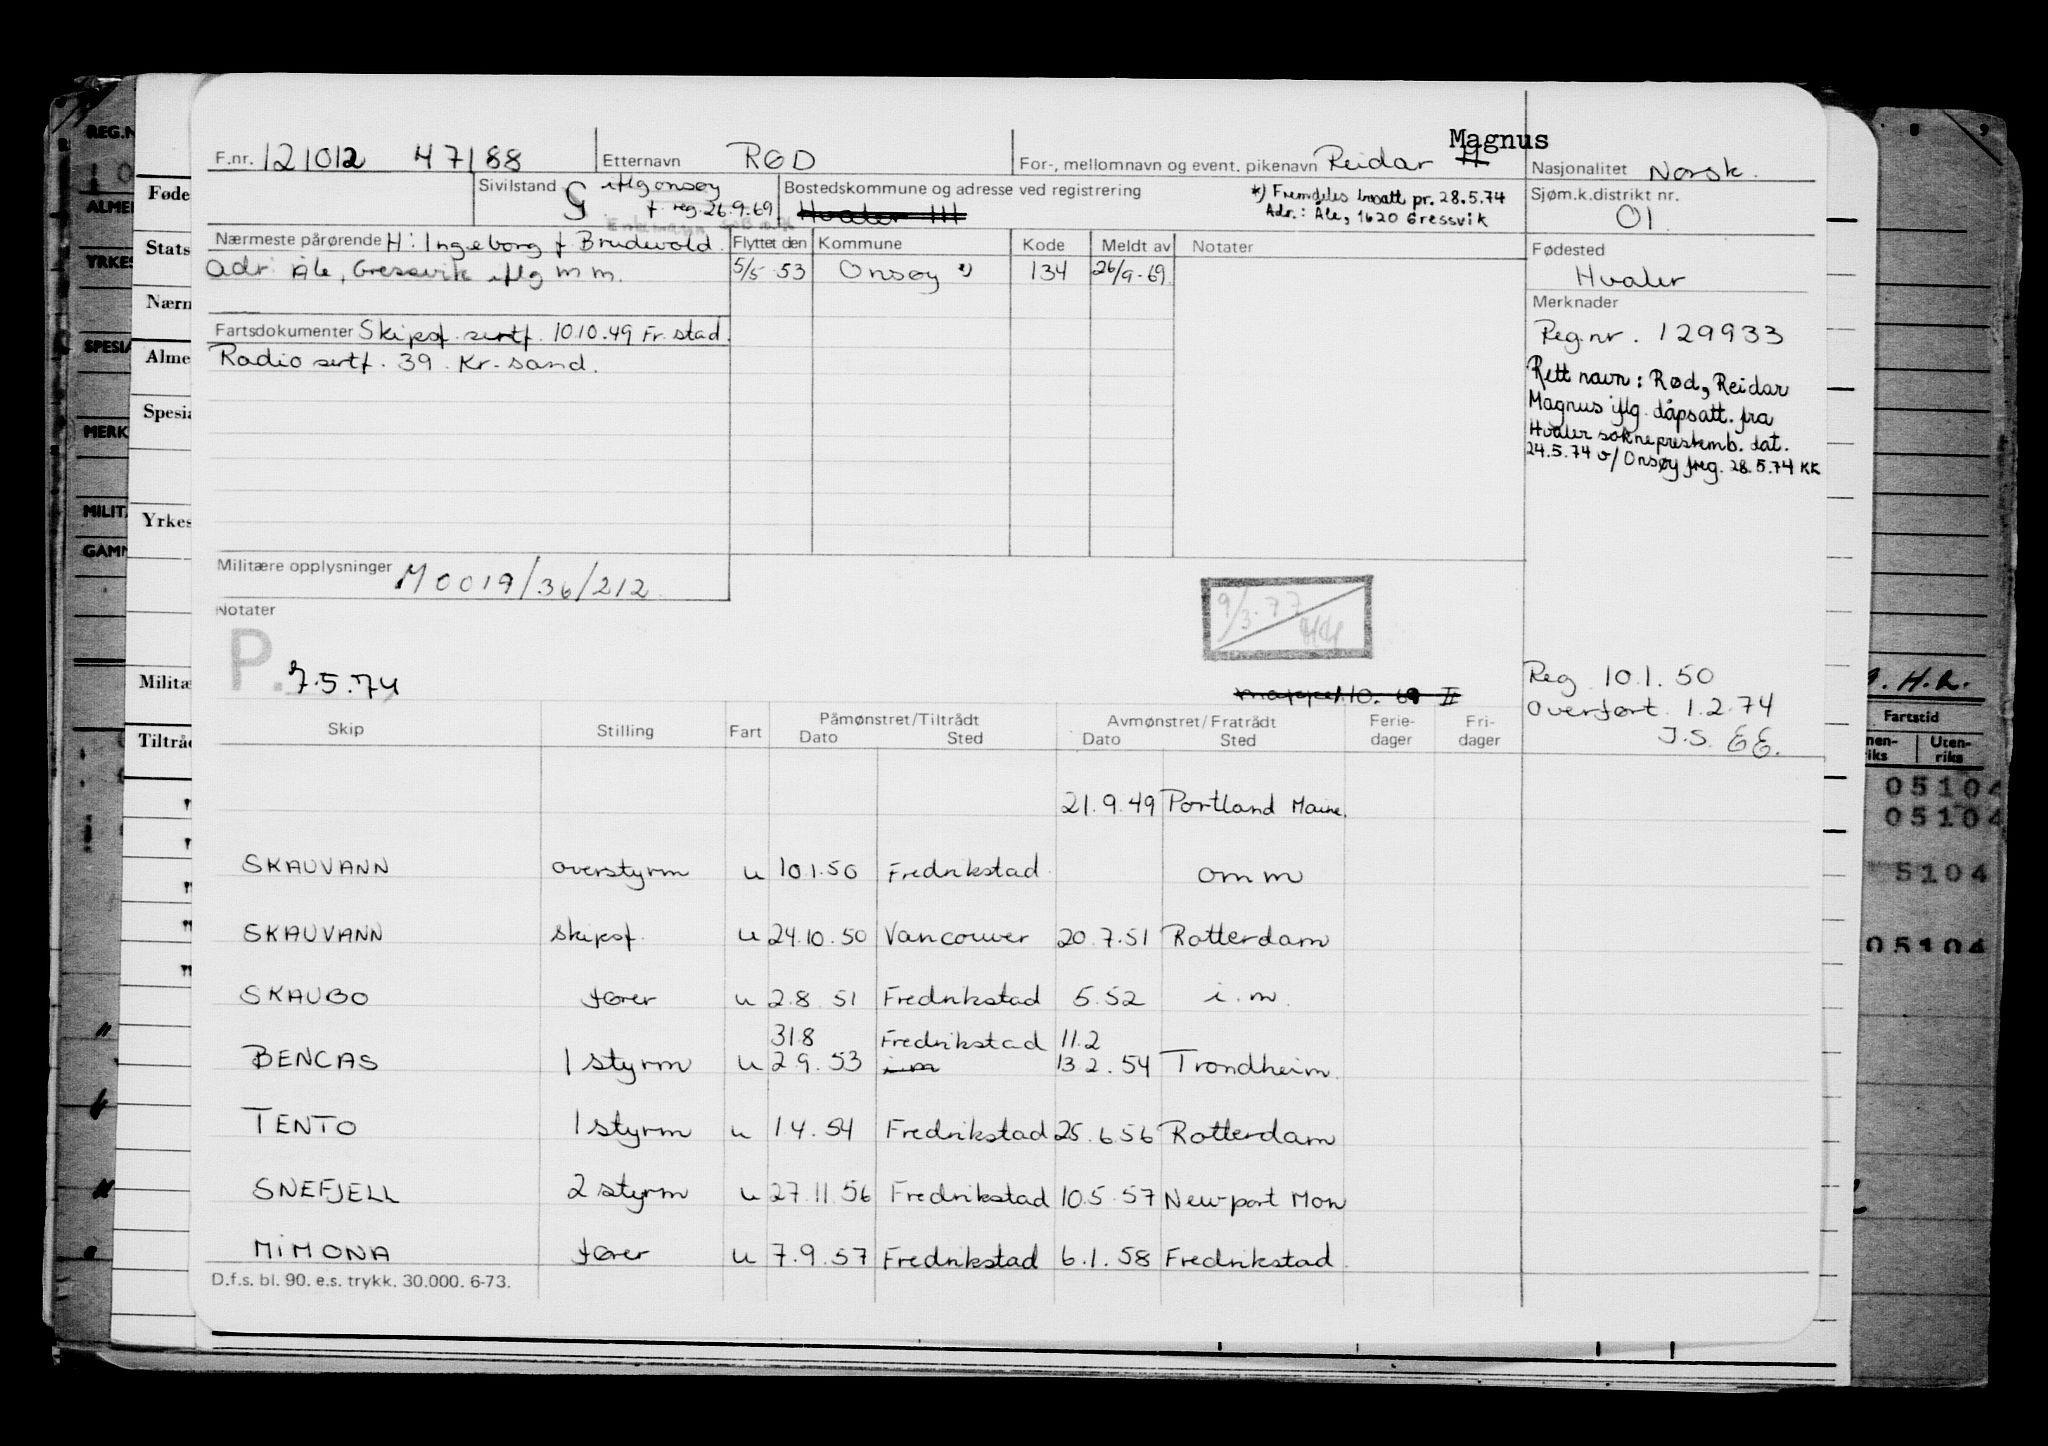 Magnus
F.nr. 121012 47188 Etternavn RØD For-, mellomnavn og event. pikenavn Reidar H Nasjonalitet Norsk.
Sivilstand G iflg onsøy f. reg. 26.9.69 Bostedskommune og adresse ved registrering Hvaler III
*) Fremdeles bosatt pr. 28.5.74
Adr.: Åle, 1620 Gressvik
Sjøm.k.distrikt nr. 01
Nærmeste pårørende H: Ingeborg f Brudevold. Flyttet den Kommune Kode Meldt av Notater
Adr Åle, Gressvik iflg m m. 5/5 53 Onsøy *) 134 26/9-69
Fødested
Hvaler
Merknader
Reg.nr. 129933
Rett navn: Rød, Reidar
Magnus iflg. dåpsatt. fra
Hvaler sokneprestemb. dat.
24.5.74 v/ Onsøy freg. 28.5.74 KK
Fartsdokumenter Skipsf. sertf. 10.10.49 Fr.stad.
Radio sertf. 39. Kr-sand.
Militære opplysninger M 0019/36/212
Notater
P. 7.5.74
9/3.77
HH
Reg 10.1.50
Overført 1.2.74
J.S. EE.
Skip Stilling Fart Påmønstret/Tiltrådt Dato Sted Avmønstret/Fratrådt Dato Sted Ferie-dager Fri-dager
21.9.49 Portland Maine.
SKAUVANN overstyrm u 10.1.50 Fredrikstad omm
SKAUVANN skipsf. u 24.10.50 Vancouver 20.7.51 Rotterdam
SKAUBO fører u 2.8.51 Fredrikstad 5.52 i.m.
31.8 Fredrikstad 11.2
BENCAS 1 styrm u 2.9.53 i m 13.2.54 Trondheim.
TENTO 1 styrm u 1.4.54 Fredrikstad 25.6.56 Rotterdam
SNEFJELL 2 styrm u 27.11.56 Fredrikstad 10.5.57 Newport Mon
MIMONA fører u 7.9.57 Fredrikstad 6.1.58 Fredrikstad
D.f.s. bl. 90. e.s. trykk. 30.000. 6-73.
REG.N
ALMEI
YRKES
SPESIA
MERK
MILIT
GAMN
Føde
Stats
Nærn
Alme
Spesia
Yrkes
Militæ
Tiltråd
H.L.
Fartstid
nen-riks Uten-riks
05104
05104
5104
05104